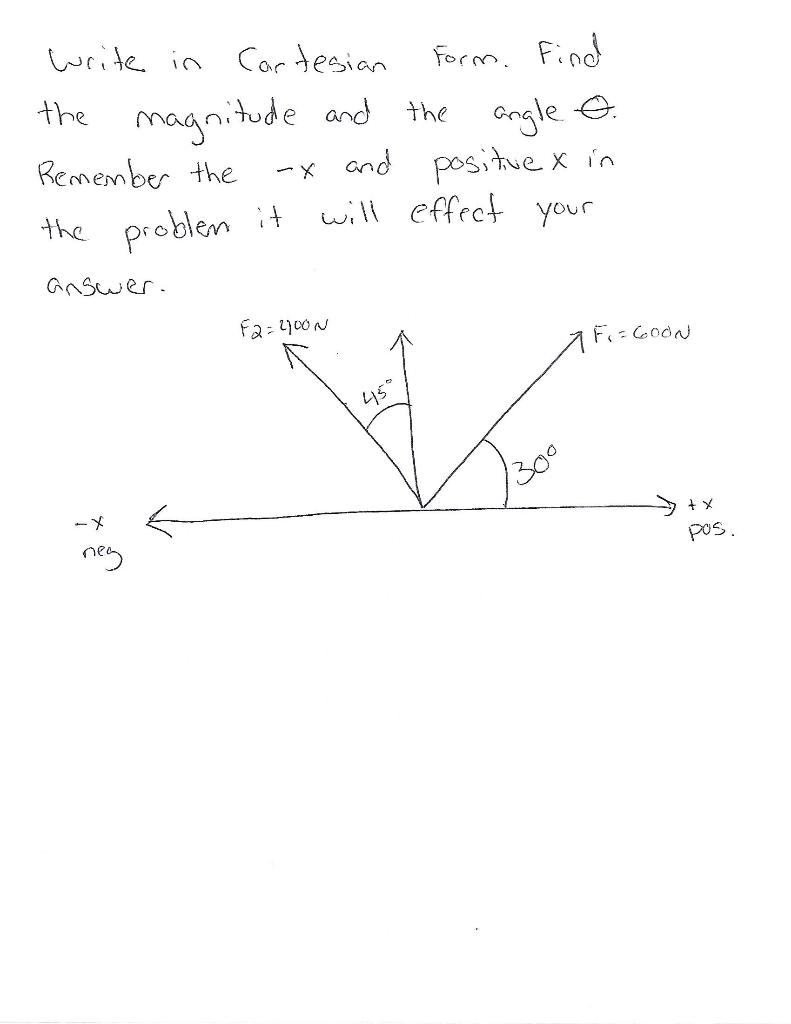 Write in Cartesian Form. Find
the magnitude and the angle Θ.
Remember the -x and positive x in
the problem it will effect your
answer.
F2=400N
F1=600N
45°
30°
-x
neg
+x
pos.